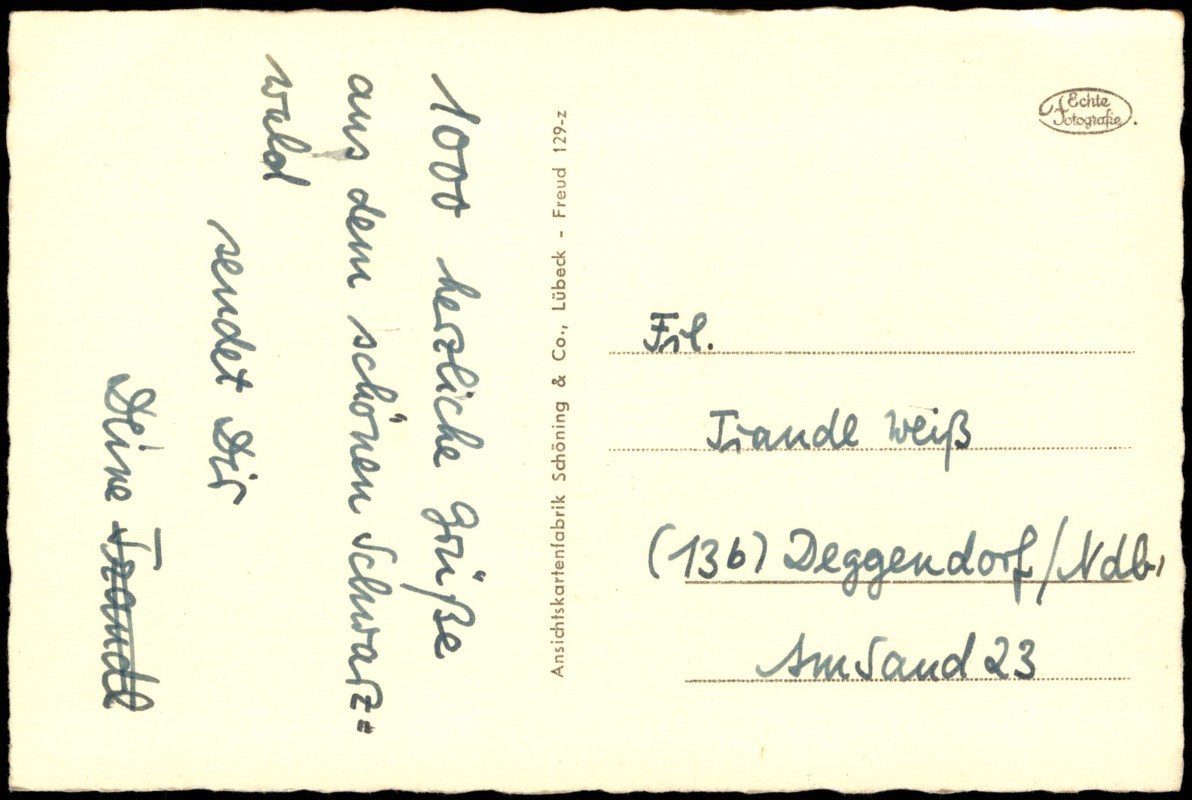 1000 herzliche Grüße
aus dem schönen Schwarz=
wald
sendet Dir
Deine Traudl
Ansichtskartenfabrik Schöning & Co., Lübeck - Freud 129-z
Echte
Fotografie
Frl.
Traudl Weiß
(13b) Deggendorf/Ndb.
Am Sand 23